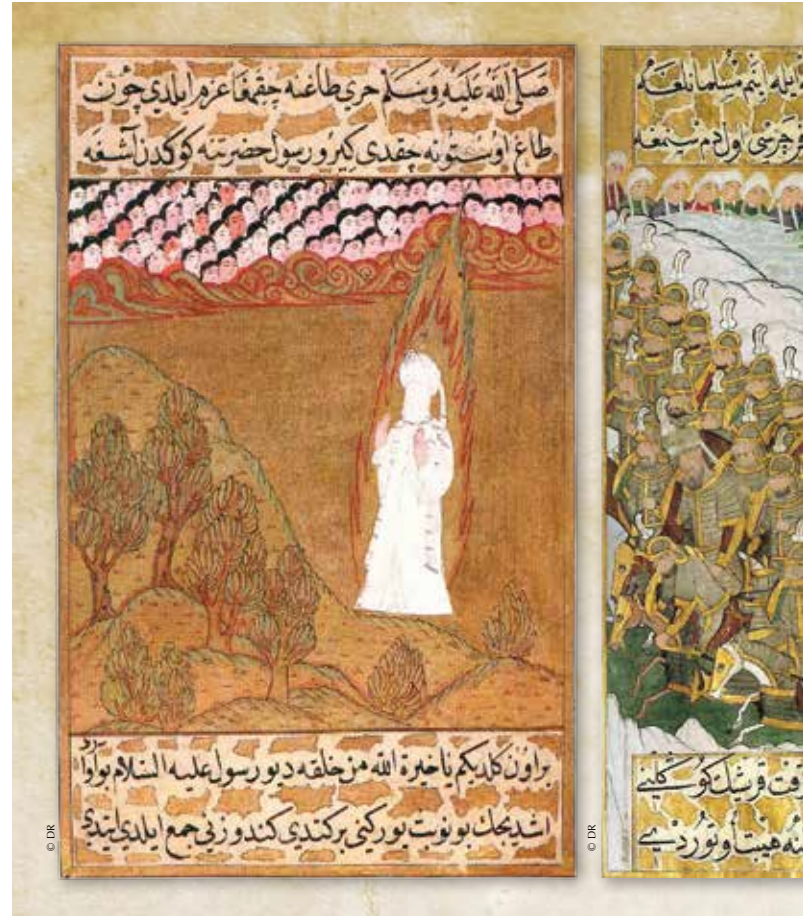 صَلَّى اللّٰه عَلَيْهِ وَسَلَّمَ حرى طاغنه چقمغا عزم ايلدى چون
طاغ اوستونه چقدى كيرو رسول حضرتنه كوكدن آشغه
براون كلديكم ياخيرة الله من خلقه ديو رسول عليه السلام بوآوا
اشديجك بو نوبت يوركنى بركتدى كندوزنى جمع ايلدى ايتدى
يله ايتم مسلمانلغمه
اول دم سينمغه
قريشك كوكلنى
هيبت اوتورديى
© DR
© DR